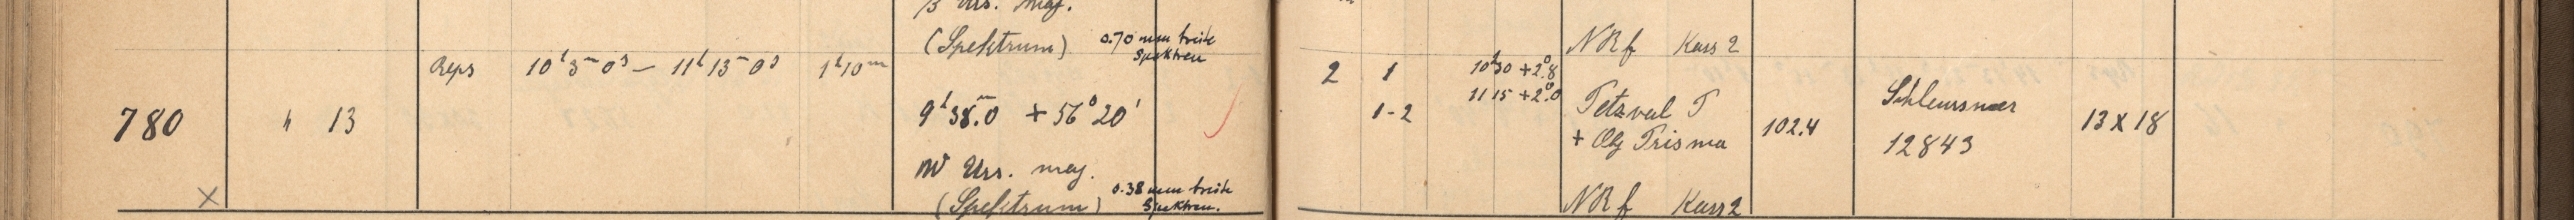 β Urs. maj.
(Spektrum) 0.70 mm breite Spektren
NRf Kass 2
780 " 13 Reps 10h 3m 0s — 11h 13m 0s 1h 10m
9h 38m.0 + 56° 20'
W Urs. maj.
(Spektrum) 0.38 mm breite Spektren.
2 1 10h30 +2°.8
1-2 11 15 +2°.0
Petzval T
+ Obj Prisma
102.4
Schleussner
12843
13 X 18
NRf Kass 2
X